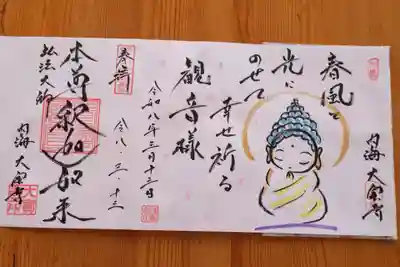 春風を
光に
のせて
幸せ祈る
観音様
令和八年三月十三日
内海 大宝寺
奉拝
令八、三、十三
本尊 釈迦如来
弘法大師
内海 大宝寺